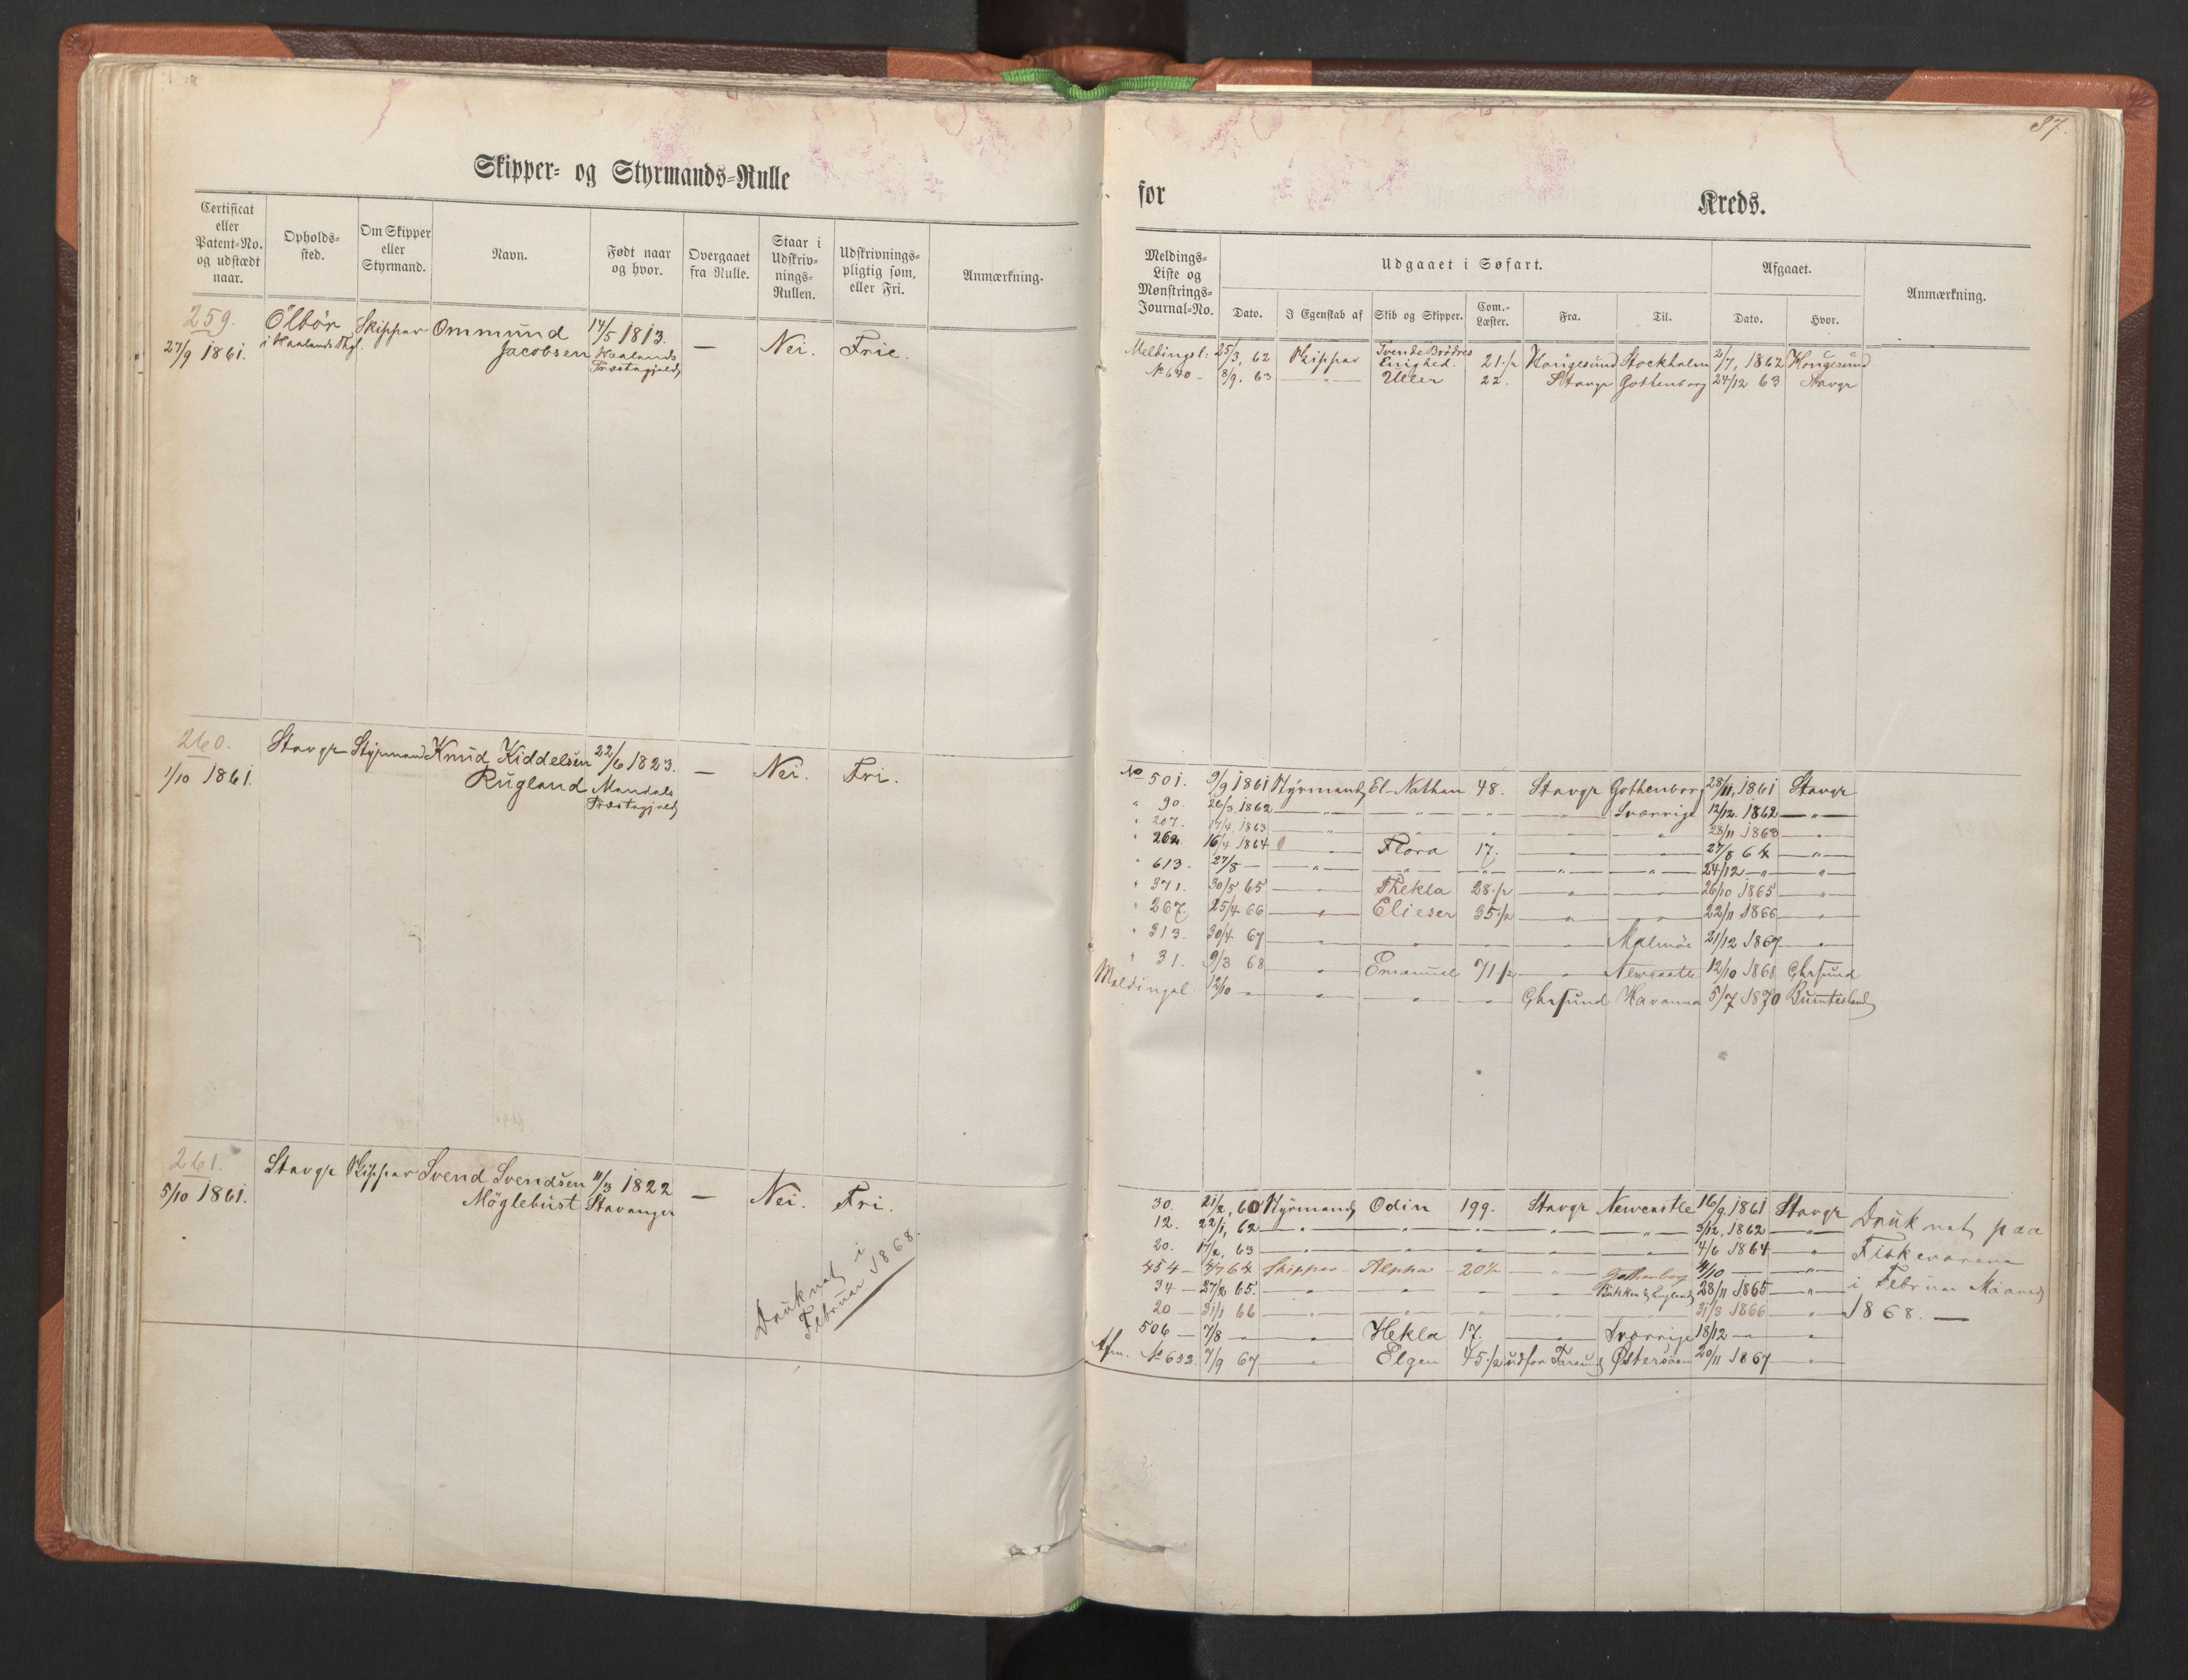 Skipper- og Styrmands-Rulle
Certificat eller Patent-No. og udstædt naar.
Opholds-sted.
Om Skipper eller Styrmand.
Navn.
Født naar og hvor.
Overgaaet fra Rulle.
Staar i Udskriv-nings-Rullen.
Udskrivnings-pligtig som, eller Fri.
Anmærkning.
259. Ölbör Skipper Ommund 14/5 1813. — Nei. Frie.
27/9 1861. i Haalands Thgl. Jacobsen Haalands
Præstegjæld
260. Stavgr Styrmand Knud Kiddelsen 22/6 1823. — Nei. Fri.
1/10 1861. Rugland Mandals
Præstegjæld
261. Stavgr Skipper Svend Svendsen 11/3 1822 — Nei. Fri.
5/10 1861. Möglebust Stavanger
Druknet i
Februar 1868.
87.
for Kreds.
Meldings-Liste og Mønstrings-Journal-No.
Udgaaet i Søfart.
Afgaaet.
Anmærkning.
Dato.
I Egenskab af
Skib og Skipper.
Com.-Læster.
Fra.
Til.
Dato.
Hvor.
Meldingsl. 25/3, 62 Skipper Tvende Brödres Enighed. 21 1/2 Haugesund Stockholm 2/7, 1862 Haugesund
No 640 - 8/9. 63 — " — Uller 22. Stavgr Gottenborg 24/12 63 Stavgr
No 501. 9/9 1861 Styrmand El-Nathan 48. Stavgr Gothenborg 28/11, 1861 Stavgr
" 90. 26/3 1862 — " — — " — — " — — " — Sverrige 12/12. 1862 — " —
" 207. 17/4 1863 — " — — " — — " — — " — — " — 28/11 1863 — " —
" 262. 16/4 1864 — " — Flora 17. — " — — " — 27/8 64 — " —
" 613. 27/8 — — " — — " — — " — — " — — " — 24/12 — " — — " —
" 371. 30/5 65 — " — Thekla 28 1/2 — " — — " — 26/10 1865 — " —
" 267. 25/4 66 — " — Elieser 35 1/2 — " — — " — 22/11 1866 — " —
" 313. 30/4 67 — " — — " — — " — — " — Malmöe 21/12 1867 — " —
" 31. 9/3 68 — " — Emanuel 71 1/2 — " — Newcastle 12/10 1868 Ghrsund
Meldingsl. 12/10 — — " — — " — — " — Ghrsund Havanna 5/7 1870 Burntisland
30. 21/2, 60 Styrmand Odin 199. Stavgr Newcastle 16/9. 1861 Stavgr Druknet paa
12. 22/1, 62 — " — — " — — " — — " — — " — 3/12, 1862 — " —
20. 17/2, 63 — " — — " — — " — — " — — " — 4/6 1864 — " — Fiskevarene
454 — 4/7 64 Skipper Alpha 20 1/2 — " — Gothenborg 4/10 — — " —
34 — 27/2 65. — " — — " — — " — — " — England 28/11 1865 — " — i Februar Maaned
20 — 31/1 66 — " — — " — — " — — " — — " — 31/3 1866 — " — 1868. —
506 — 7/8 — — " — Hekla 17. — " — Sverrige 18/12 — — " —
No 652. 7/9 67 — " — Elgen 45 1/2 udfra Farsund Østersöen 20/11 1867 — " —